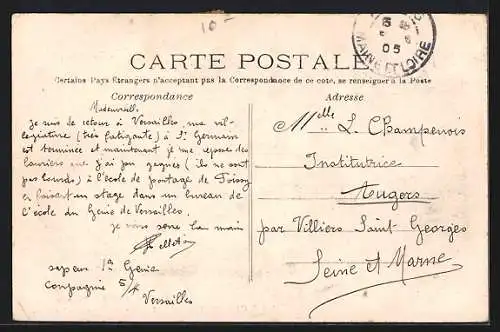 10-
CARTE POSTALE
Certains Pays Étrangers n'acceptant pas la Correspondance de ce coté, se renseigner à la Poste
Correspondance
Adresse
05
MAINE ET LOIRE
Je suis de retour à Versailles, ma vil-
legiature (très fatigante) à St Germain
est terminée et maintenant je me repose des
lauriers que j'ai pu gagner (ils ne sont
pas lourds) à l'école de pontage de Poissy
en faisant un stage dans un bureau de
l'école du Génie de Versailles.
je vous serre la main
sapeur 1er Génie
compagnie 5/
Versailles
Melle L. Champenois
Institutrice
Augers
par Villiers Saint Georges
Seine et Marne